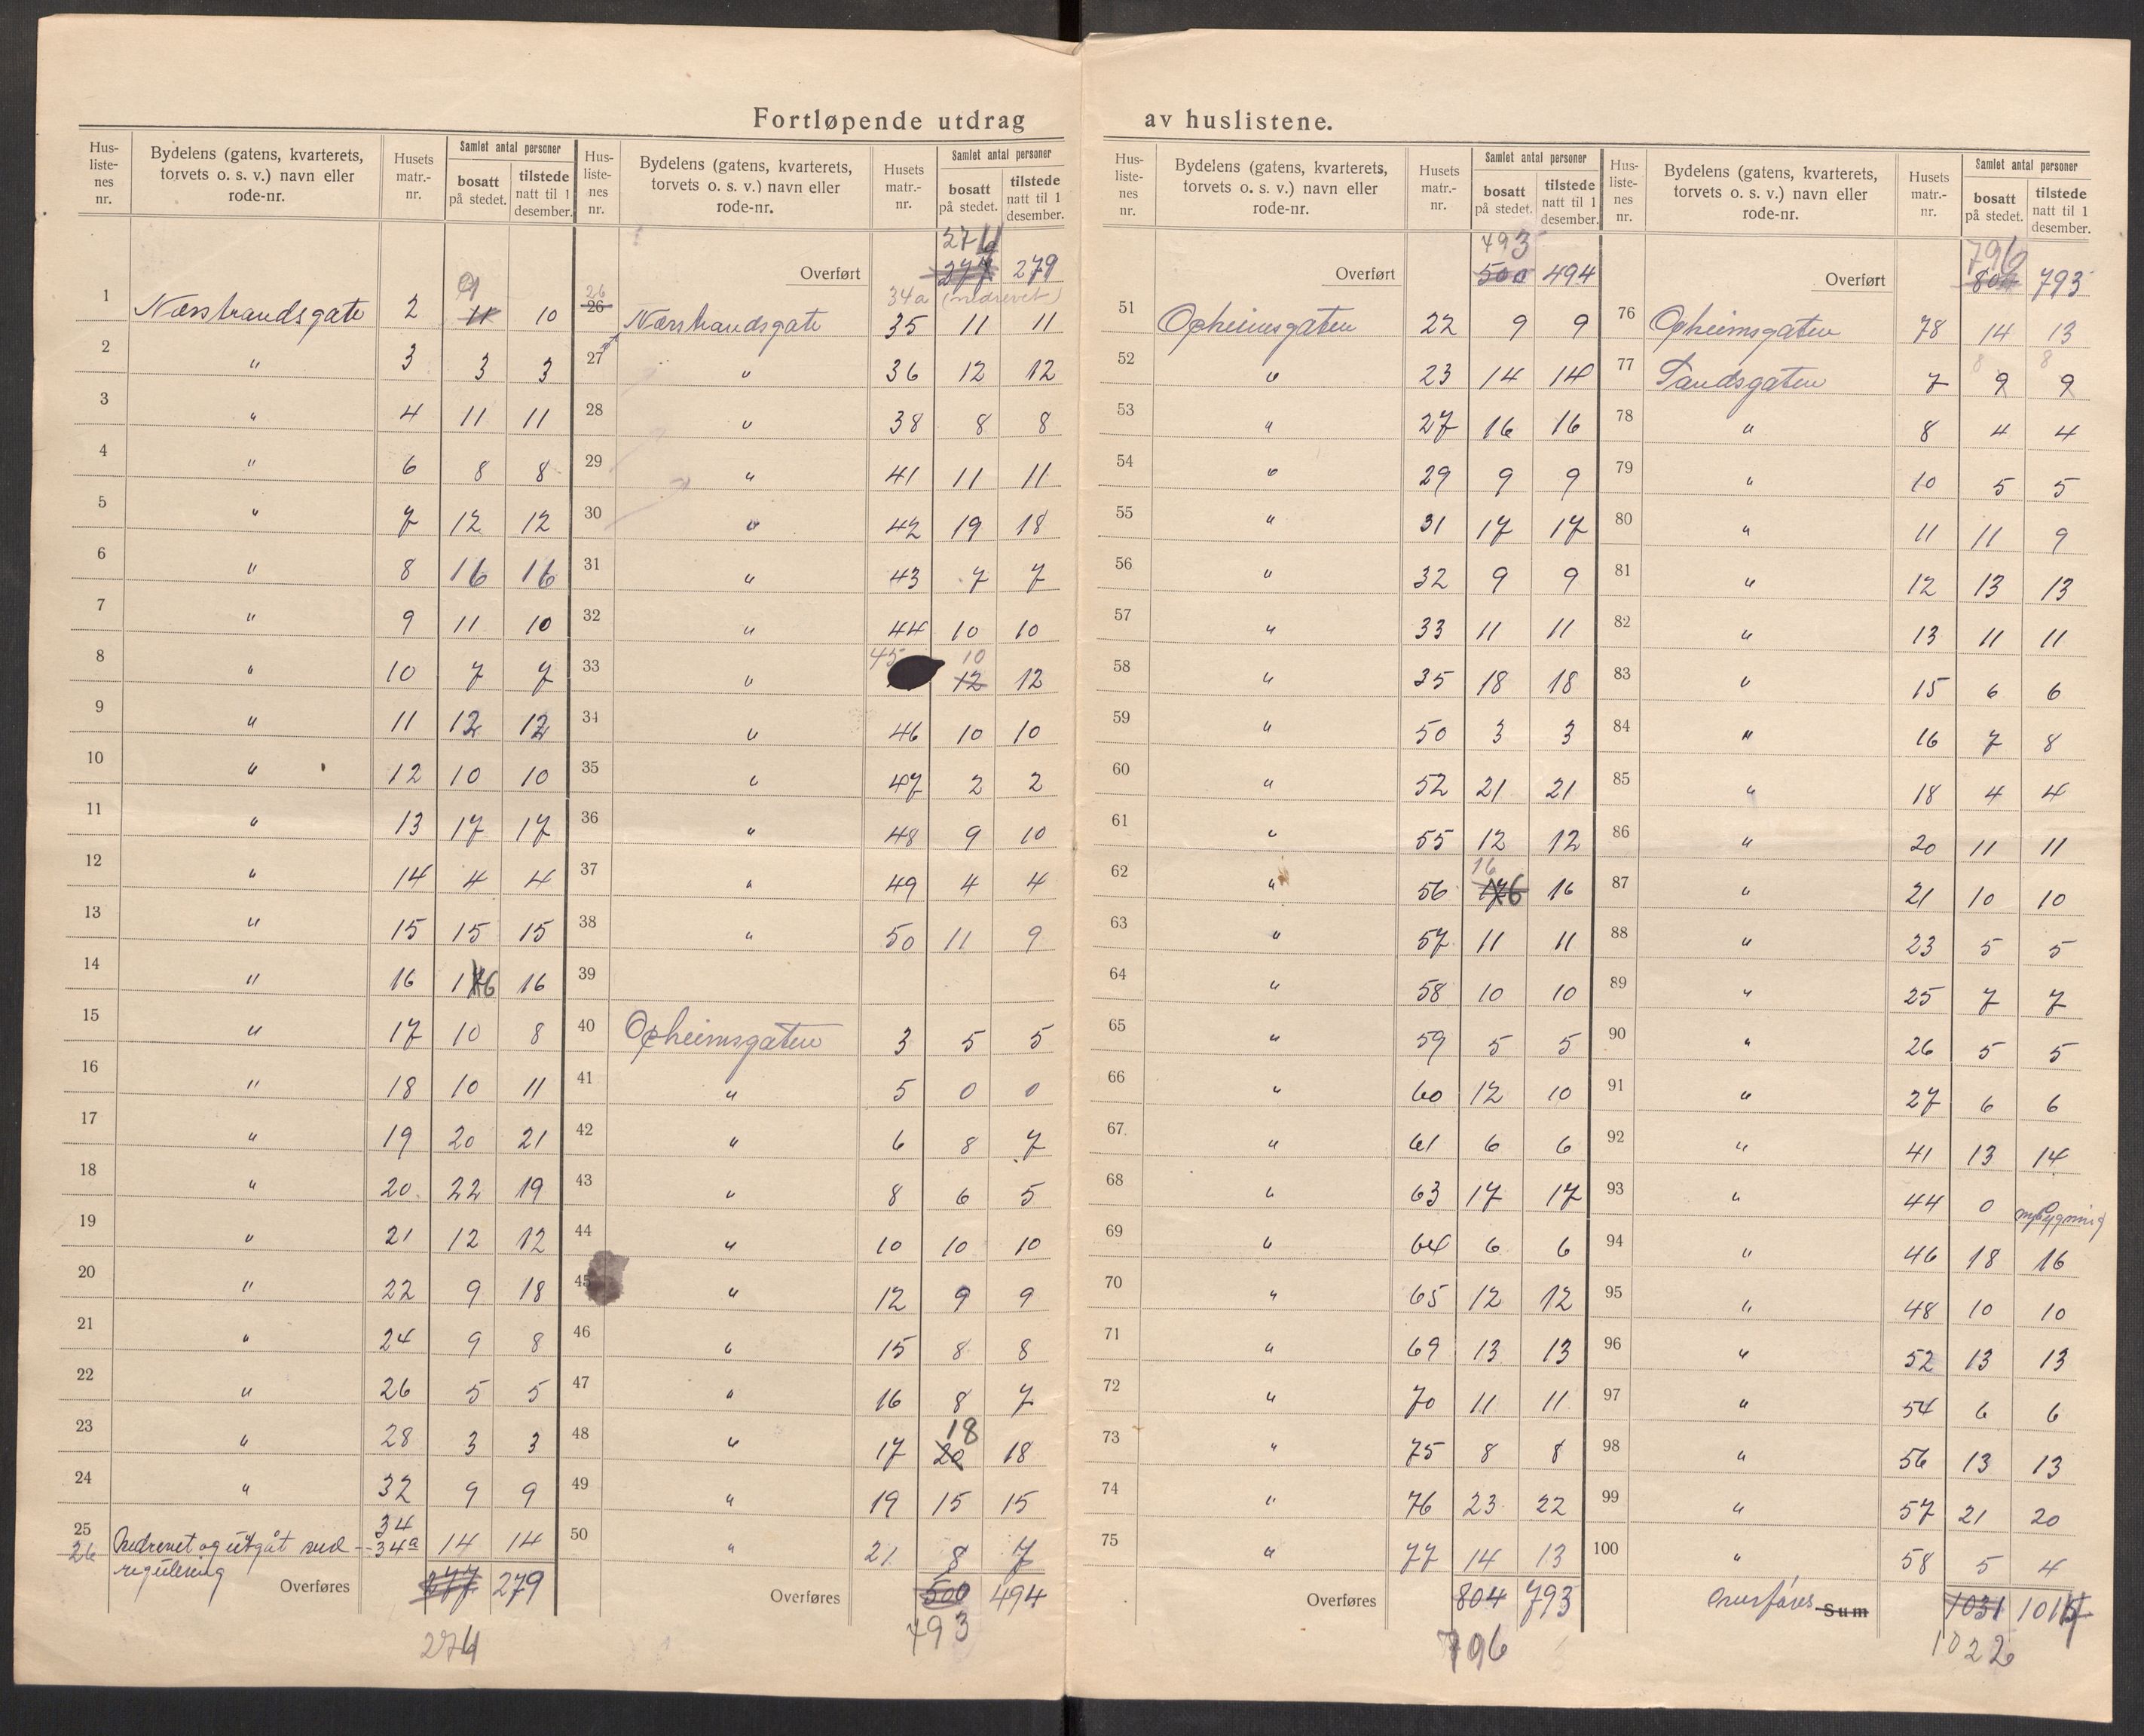 Fortløpende utdrag av huslistene.
Hus-liste-nes nr. | Bydelens (gatens, kvarterets, torvets o. s. v.) navn eller rode-nr. | Husets matr.-nr. | Samlet antal personer | bosatt på stedet. | tilstede natt til 1 desember.
9
1 Nærstrandsgate 2 11 10
2 " 3 3 3
3 " 4 11 11
4 " 6 8 8
5 " 7 12 12
6 " 8 16 16
7 " 9 11 10
8 " 10 7 7
9 " 11 12 12
10 " 12 10 10
11 " 13 17 17
12 " 14 4 4
13 " 15 15 15
14 " 16 176 16
15 " 17 10 8
16 " 18 10 11
17 " 19 20 21
18 " 20 22 19
19 " 21 12 12
20 " 22 9 18
21 " 24 9 8
22 " 26 5 5
23 " 28 3 3
24 " 32 9 9
25 34
26 Nedrevet og utgåt ved 34a 14 14
regulering
Overføres 277 279
274
Hus-liste-nes nr. | Bydelens (gatens, kvarterets, torvets o. s. v.) navn eller rode-nr. | Husets matr.-nr. | Samlet antal personer | bosatt på stedet. | tilstede natt til 1 desember.
274
Overført 277 279
26 34a (nedrevet)
26 Nærstrandsgate 35 11 11
27 " 36 12 12
28 " 38 8 8
29 " 41 11 11
30 " 42 19 18
31 " 43 7 7
32 " 44 10 10
45 10
33 " 12 12
34 " 46 10 10
35 " 47 2 2
36 " 48 9 10
37 " 49 4 4
38 " 50 11 9
39
40 Opheimsgaten 3 5 5
41 " 5 0 0
42 " 6 8 7
43 " 8 6 5
44 " 10 10 10
45 " 12 9 9
46 " 15 8 8
47 " 16 8 7
18
48 " 17 20 18
49 " 19 15 15
50 " 21 8 7
Overføres 500 494
493
Hus-liste-nes nr. | Bydelens (gatens, kvarterets, torvets o. s. v.) navn eller rode-nr. | Husets matr.-nr. | Samlet antal personer | bosatt på stedet. | tilstede natt til 1 desember.
493
Overført 500 494
51 Opheimsgaten 22 9 9
52 " 23 14 14
53 " 27 16 16
54 " 29 9 9
55 " 31 17 17
56 " 32 9 9
57 " 33 11 11
58 " 35 18 18
59 " 50 3 3
60 " 52 21 21
61 " 55 12 12
16
62 " 56 176 16
63 " 57 11 11
64 " 58 10 10
65 " 59 5 5
66 " 60 12 10
67 " 61 6 6
68 " 63 17 17
69 " 64 6 6
70 " 65 12 12
71 " 69 13 13
72 " 70 11 11
73 " 75 8 8
74 " 76 23 22
75 " 77 14 13
Overføres 804 793
796
Hus-liste-nes nr. | Bydelens (gatens, kvarterets, torvets o. s. v.) navn eller rode-nr. | Husets matr.-nr. | Samlet antal personer | bosatt på stedet. | tilstede natt til 1 desember.
796
Overført 804 793
76 Opheimsgaten 78 14 13
8 8
77 Sandsgaten 7 9 9
78 " 8 4 4
79 " 10 5 5
80 " 11 11 9
81 " 12 13 13
82 " 13 11 11
83 " 15 6 6
84 " 16 7 8
85 " 18 4 4
86 " 20 11 11
87 " 21 10 10
88 " 23 5 5
89 " 25 7 7
90 " 26 5 5
91 " 27 6 6
92 " 41 13 14
93 " 44 0 nybygning
94 " 46 18 16
95 " 48 10 10
96 " 52 13 13
97 " 54 6 6
98 " 56 13 13
99 " 57 21 20
100 " 58 5 4
Overføres Sum 1031
1022